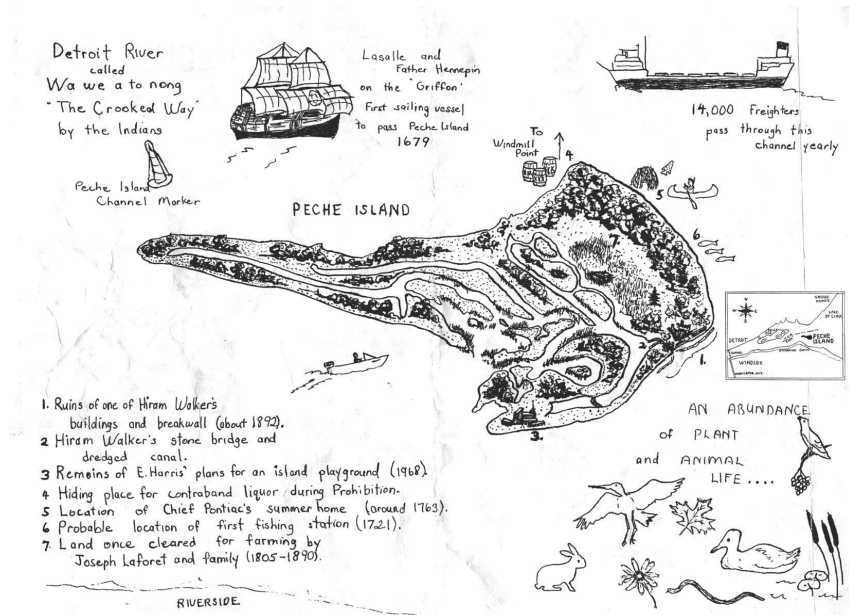 Detroit River
called
Wa we a to nong
"The Crooked Way"
by the Indians
Peche Island
Channel Marker
Lasalle and
Father Hennepin
on the "Griffon"
First sailing vessel
to pass Peche Island
1679
14,000 Freighters
pass through this
channel yearly
To
Windmill
Point
4
5
PECHE ISLAND
6
7
2
1.
3.
GROSSE
POINTE
LAKE
ST CLAIR
N
W
E
S
DETROIT
PECHE
ISLAND
WINDSOR
1. Ruins of one of Hiram Walker's
buildings and breakwall (about 1892).
2 Hiram Walker's stone bridge and
dredged canal.
3 Remains of E. Harris' plans for an island playground (1968).
4 Hiding place for contraband liquor during Prohibition.
5 Location of Chief Pontiac's summer home (around 1763).
6 Probable location of first fishing station (1721).
7. Land once cleared for farming by
Joseph Laforet and family (1805-1890).
AN ABUNDANCE
of PLANT
and ANIMAL
LIFE....
RIVERSIDE